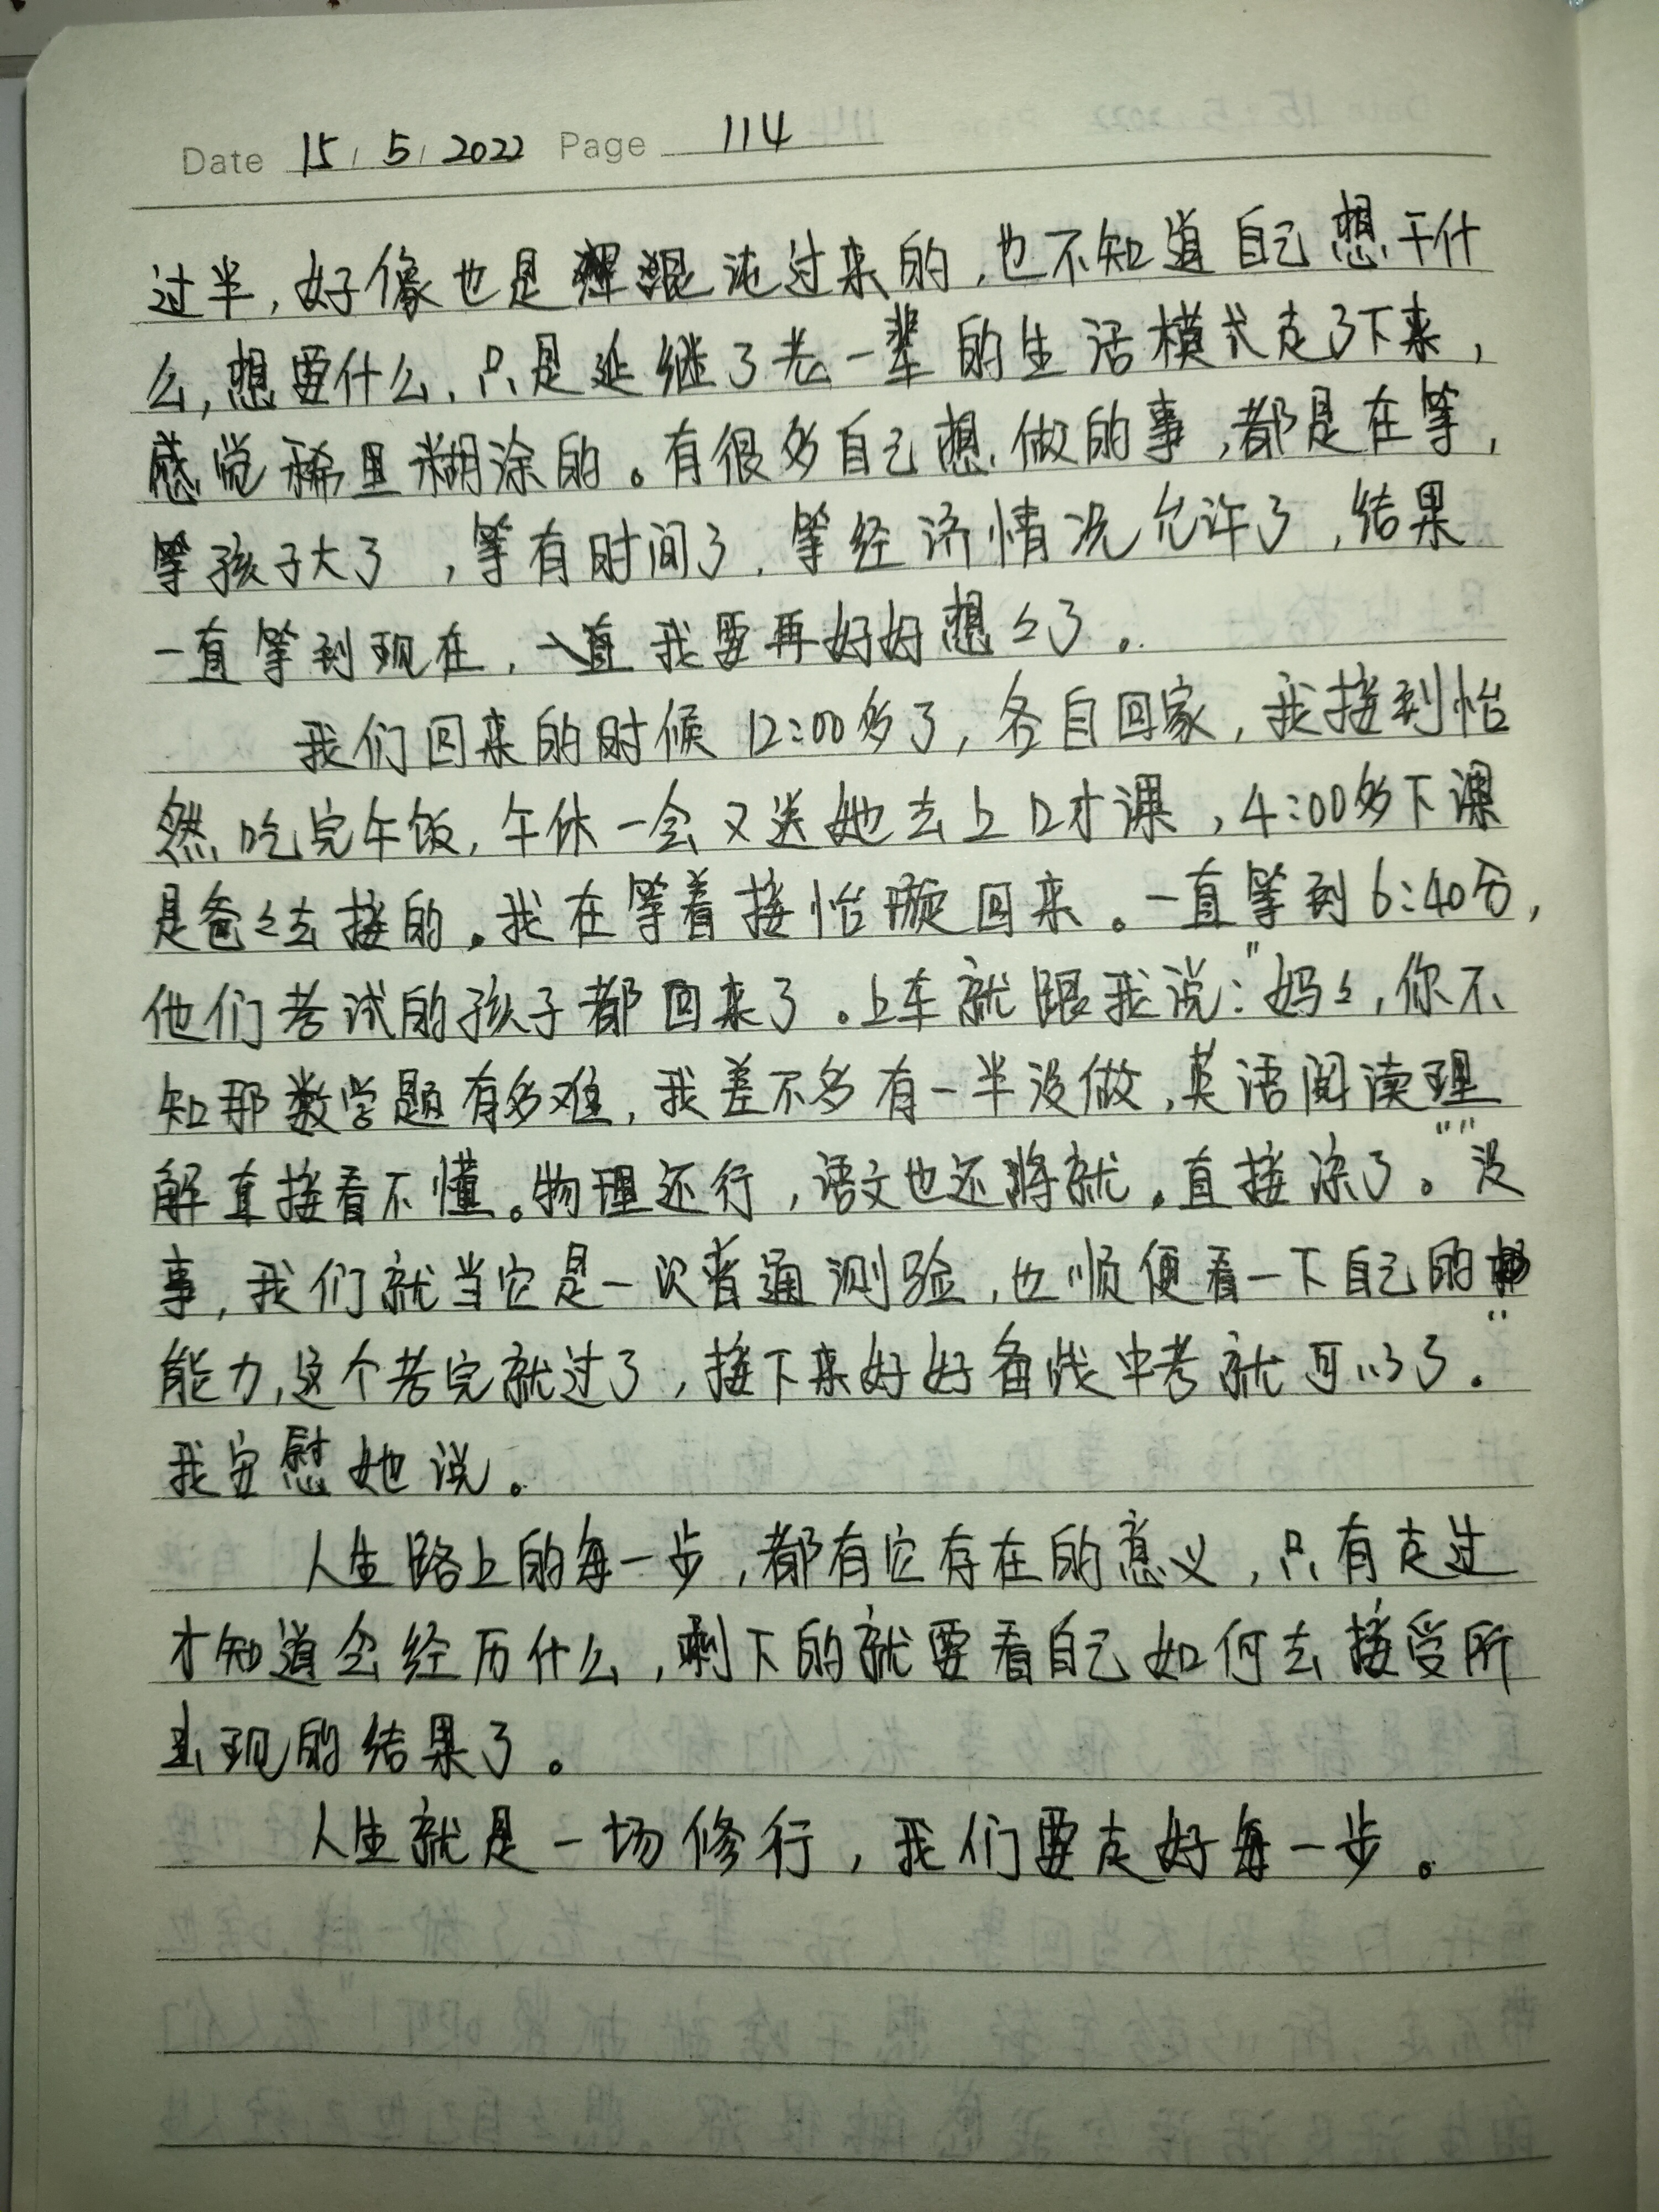 Date 15 / 5 / 2022 Page 114
过半，好像也是混沌过来的，也不知道自己想干什
么，想要什么，只是延继了老一辈的生活模式走了下来，
感觉稀里糊涂的。有很多自己想做的事，都是在等，
等孩子大了，等有时间了，等经济情况允许了，结果
一直等到现在，一直我要再好好想々了。
我们回来的时候12:00多了，各自回家，我接到怡
然吃完午饭，午休一会又送她去上口才课，4:00多下课
是爸々去接的。我在等着接怡璇回来。一直等到6:40分，
他们考试的孩子都回来了。上车就跟我说："妈々，你不
知那数学题有多难，我差不多有一半没做，英语阅读理
解直接看不懂。物理还行，语文也还将就。直接涂了。""没
事，我们就当它是一次普通测验，也顺便看一下自己的
能力，这个考完就过了，接下来好好备战中考就可以了。"
我安慰她说。
人生路上的每一步，都有它存在的意义，只有走过
才知道会经历什么，剩下的就要看自己如何去接受所
出现的结果了。
人生就是一场修行，我们要走好每一步。